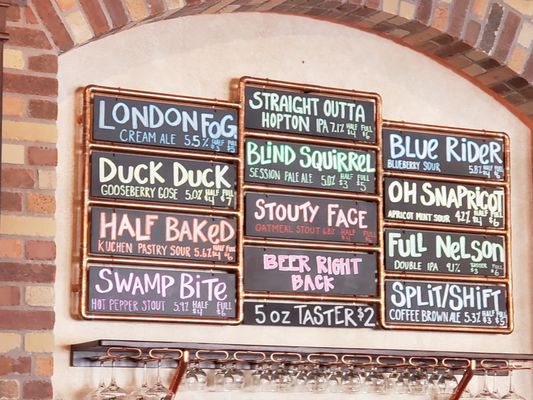 LONDON FOG
CREAM ALE 5.5%
DUCK DUCK
GOOSEBERRY GOSE 5.0% HALF $4 FULL $7
HALF BAKED
KUCHEN PASTRY SOUR 5.6% HALF $4 FULL $6
SWAMP BITE
HOT PEPPER STOUT 5.9% HALF $4 FULL
STRAIGHT OUTTA
HOPTON IPA 7.1% HALF $4 FULL $6
BLIND SQUIRREL
SESSION PALE ALE 5.0% HALF $3 FULL $5
STOUTY FACE
OATMEAL STOUT HALF FULL
BEER RIGHT
BACK
5 OZ TASTER $2
BLUE RIDER
BLUEBERRY SOUR HALF FULL
OH SNAPRICOT
APRICOT MINT SOUR 4.2% HALF $4 FULL $6
FULL NELSON
DOUBLE IPA 9.1% HALF FULL
SPLIT/SHIFT
COFFEE BROWN ALE 5.3% HALF $3 FULL $5